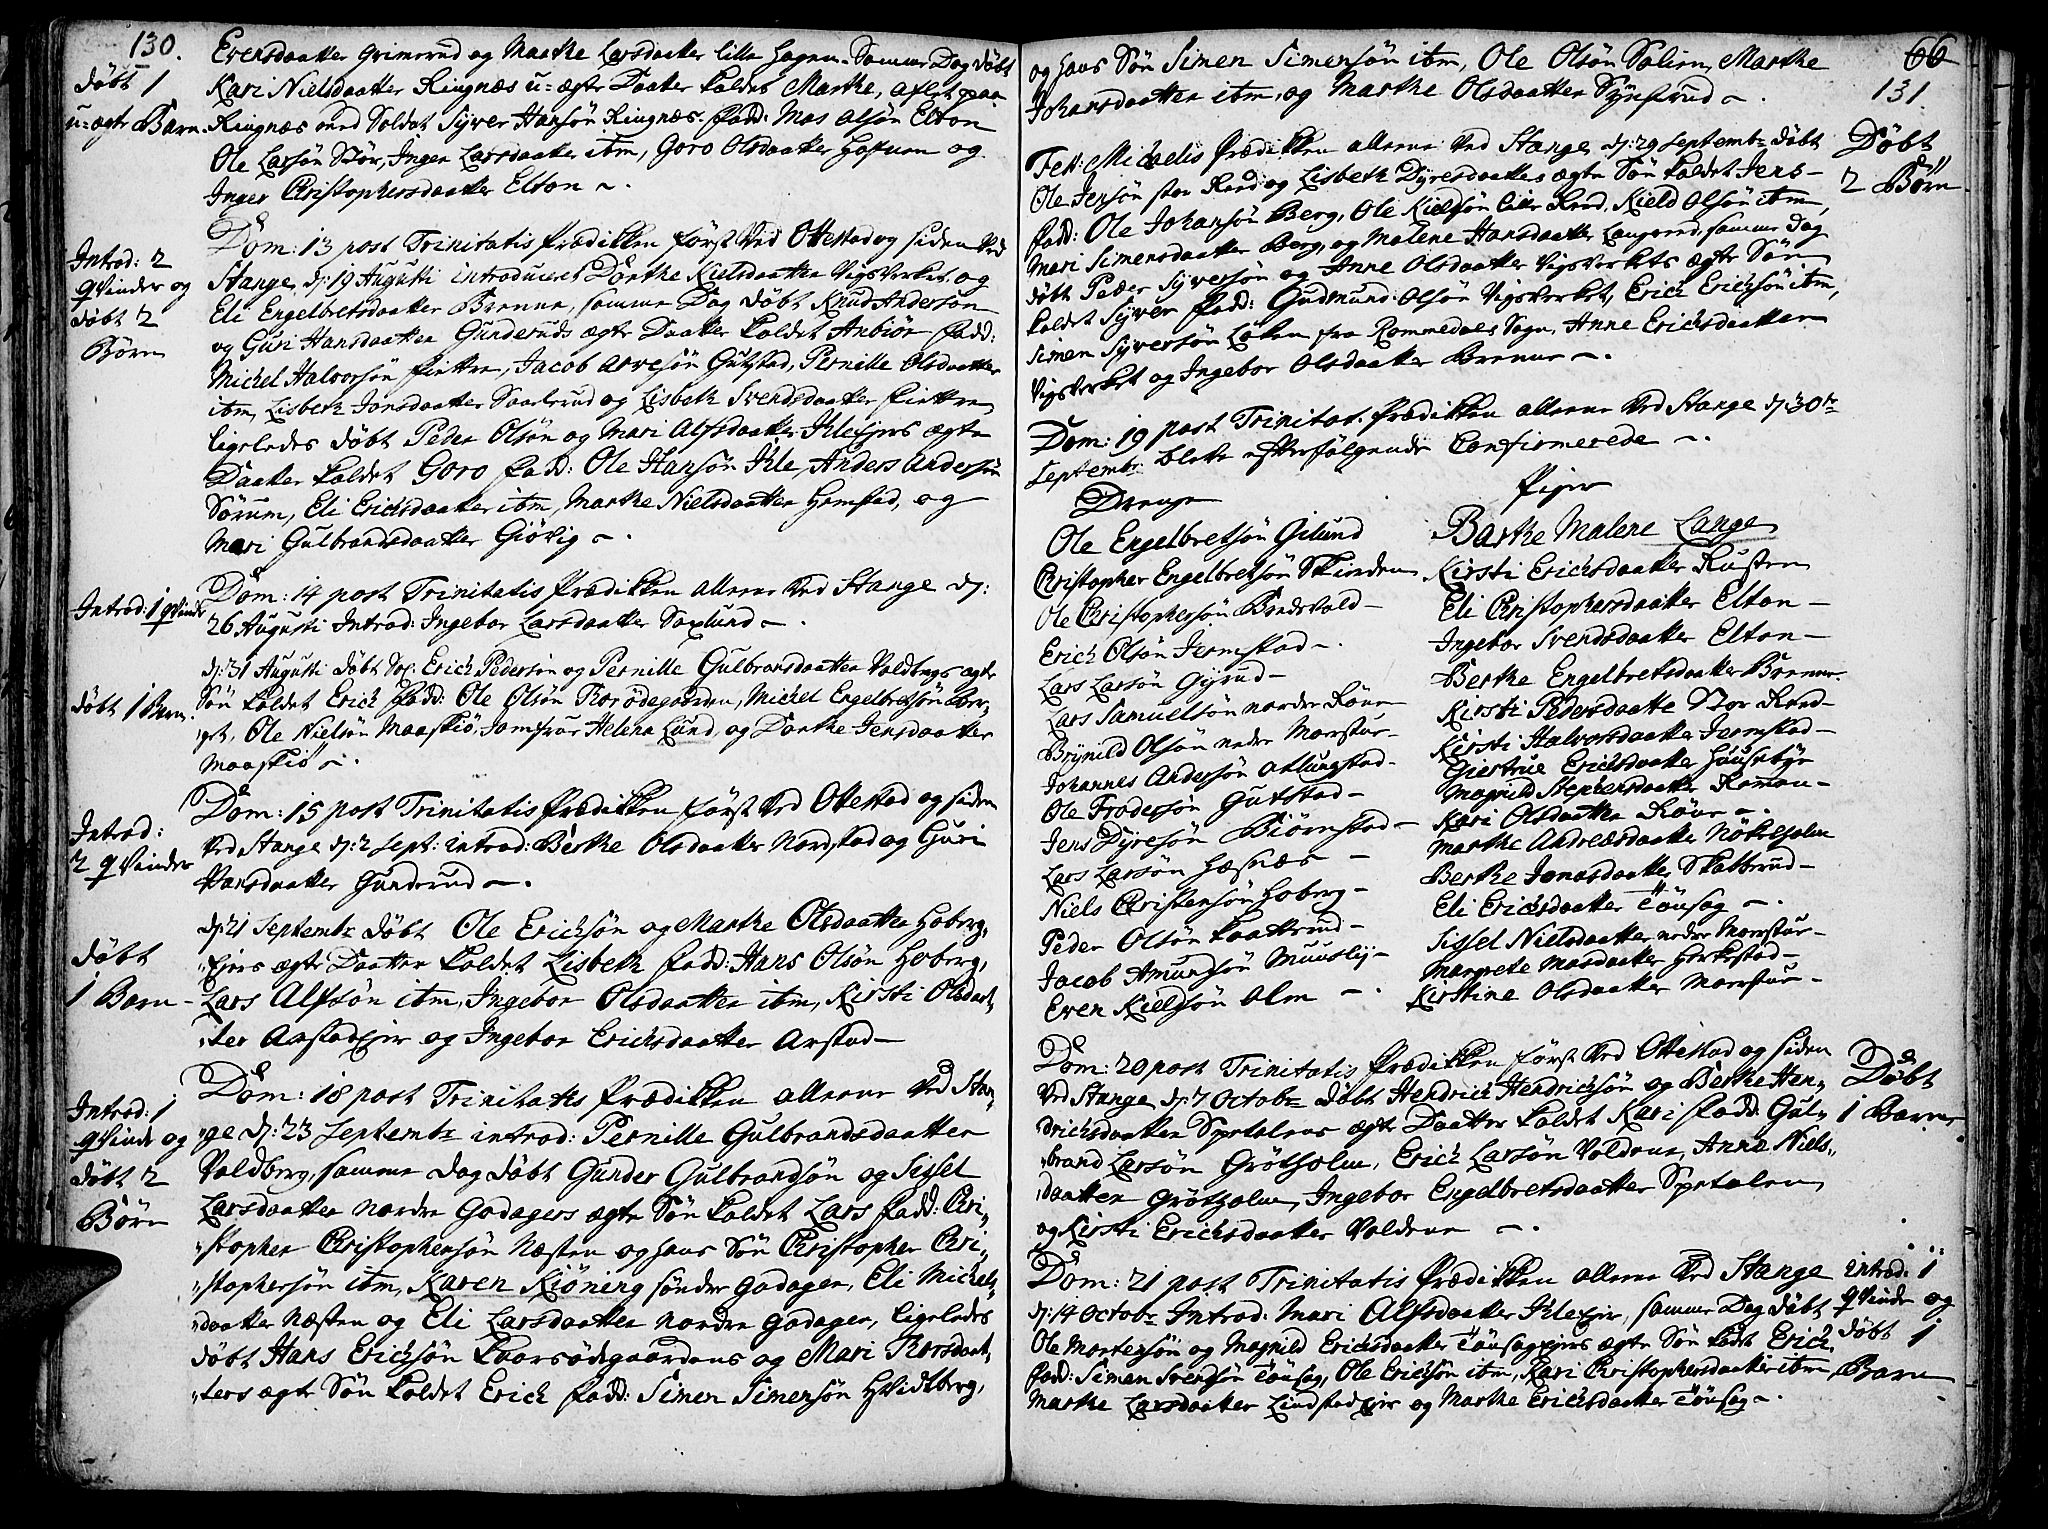 130.
Evensdaatter Grimerud og Marthe Larsdaatter lille Hagen. Samme Dag døbt
døbt 1
Kari Nielsdaatter Ringnæs u-ægte Daater kaldet Marthe, aflet paa
u-ægte Barn.
Ringnæs med Soldat Syver Hansøn Ringnæs. fadd: Mas Olsøn Elton
Ole Larsøn Stør, Inger Larsdaatter ibm, Goro Olsdaatter Hosum og
Inger Christophersdaatter Elton -.
Dom: 13 post Trinitatis Prædikken først Ved Ottestad og siden Ved
Introd: 2
qvinder og
døbt 2
Børn
Stange, d: 19 Augusti introduceret Dorthe Kielsdaatter Vigsverket og
Eli Engelbretsdaatter Brenne, samme Dag døbt Knud Andersøn
og Guri Hansdaatter Gunderuds ægte Daater kaldet Anbiør fadd:
Michel Halvorsøn Fiettre, Jacob Arvesøn Gutstad, Pernille Olsdaatter
ibm, Lisbeth Jonsdaatter Saastrud og Lisbeth Svendsdaatter Fiettre,
ligeledes døbt Peder Olsøn og Mari Alfsdaatter Ihle Ejers ægte
Daater kaldet Goro fadd: Ole Hansøn Ihle, Anders Andersøn
Sørum, Eli Erichsdaatter ibm, Marthe Nielsdaatter Hemstad, og
Mari Gulbrandsdaatter Giøvig -.
Dom: 14 post Trinitatis Prædikken allene Ved Stange d:
Introd: 1 qvinde
26 Augusti Introd: Ingebor Larsdaatter Saxlund -.
d: 31 Augusti døbt Erich Pedersøn og Pernille Gulbransdaatter Voldbergs ægte
døbt 1 Barn.
Søn kaldet Erich fadd: Ole Olsøn Korsødegaarden, Michel Engelbretsøn Ber-
get, Ole Nielsøn Maaskiø, Jomfrue Helena Lund, og Dorthe Jensdaatter
Maaskiø -.
Dom: 15 post Trinitatis Prædikken først Ved Ottestad og siden
Introd:
2 qvinder
Ved Stange d: 2 Sept: introd: Berthe Olsdaatter Nordstad og Guri
Hansdaatter Gunderud -.
d: 21 Septembr døbt Ole Erichsøn og Marthe Olsdaatter Hoberg
døbt
1 Barn -
Ejers ægte Daatter kaldet Lisbeth fadd: Hans Olsøn Hoberg,
Lars Alfsøn ibm, Ingebor Olsdaatter ibm, Kirsti Olsdaat-
ter Arstad Ejer og Ingebor Erichsdaatter Arstad -
Dom: 18 post Trinitatis Prædikken allene Ved Stan-
Introd: 1
qvinde og
døbt 2
Børn
ge d: 23 Septembr introd: Pernille Gulbrandsdaatter
Voldberg, samme dag døbt Gunder Gulbrandsøn og Sissel
Larsdaatter nordre Godagers ægte Søn kaldet Lars fadd: Chri-
stopher Christophersøn Næsten og hans Søn Christopher Chri-
stophersøn ibm, Karen Kiöning søndre Godager, Eli Michels-
daatter Næsten og Eli Larsdaatter nordre Godager, ligeledes
døbt Hans Erichsøn Korsødegaardens og Mari Thorsdaat-
ters ægte Søn kaldet Erich fadd: Simen Simensøn Hvidberg,
66
131.
og hans Søn Simen Simensøn ibm, Ole Olsøn Solien, Marthe
Johansdaatter ibm, og Marthe Olsdaatter Synsrud -.
Fest: Michaelis Prædikken allene Ved Stange d: 29 Septembr døbt
Døbt
2 Børn
Ole Jensøn stor Rend og Lisbeth Dyresdaatters ægte Søn kaldet Jens -
fadd: Ole Johansøn Berg, Ole Kieldsøn lille Rend, Kield Olsøn ibm,
Mari Simensdaatter Berg, og Malene Hansdaatter Langerud. samme dag
døbt Peder Syversøn og Anne Olsdaatter Vigsverkets ægte Søn
kaldet Syver fadd: Gudmund Olsøn Vigsverket, Erich Erichsøn ibm,
Simen Syversøn Løken fra Rommedals Sogn, Anne Erichsdaatter
Vigsverket og Ingebor Olsdaatter Brenne -.
Dom: 19 post Trinitat. Prædikken allene Ved Stange d: 30te
Septembr bleve efterfølgende Confirmerede -.
Drenge
Ole Engelbretsøn Gilund
Christopher Engelbretsøn Skinden
Ole Christophersøn Bredvold -
Erich Olsøn Jermstad -.
Lars Larsøn Gyrud -
Lars Samuelsøn nordre Røne
Brynild Olsøn nedre Morstue -
Johannes Andersøn Atlungstad -
Ole Frodersøn Gutstad -
Jens Dyresøn Biørnstad -
Lars Larsøn Hæsnæs -
Niels Christensøn Hoberg -
Peder Olsøn Kaatterud -
Jacob Amundsøn Muusly -
Even Kieldsøn Alm -.
Piger
Barthe Malene Lange
Kirsti Erichsdaatter Rusten
Eli Christophersdaatter Elton -
Ingebor Svendsdaatter Elton -
Berthe Engelbretsdaatter Brenne.
Kirsti Pedersdaatter Stor Rend -
Kirsti Halvorsdaatter Jermstad -
Giertrue Erichsdaatter Housebye
Magnild Stephensdaatter Roman -
Kari Olsdaatter Røne -.
Marthe Andreæsdaatter Nøkleholm
Berthe Jonasdaatter Skatterud -
Eli Erichsdaatter Tousag -.
Sissel Nielsdaatter nedre Morstue -
Margrete Masdaatter Horkestad -
Kirstine Olsdaatter Morstue -
Dom: 20 post Trinitatis Prædikken først Ved Ottestad og siden
Døbt
1 Barn
Ved Stange d: 7 Octobr døbt Hendrich Hendrichsøn og Berthe Hen-
drichsdaatter Spetalens ægte Daatter kaldet Kari fadd: Gul-
brand Larsøn Grøtholm, Erich Larsøn Voldene, Anne Niels-
daatter Grøtholm, Ingebor Engelbretsdaatter Spetalen,
og Kirsti Erichsdaatter Voldene -.
Dom: 21 post Trinitatis Prædikken allene Ved Stange
introd: 1
qvinde og
døbt 1
Barn
d: 14 Octobr Introd: Mari Alfsdaatter Ihle Ejer, samme Dag døbt
Ole Mortensøn og Magnild Erichsdaatter Tousag Ejers ægte Søn kaldt Erich
fadd: Simen Svendsøn Tousag, Ole Erichsøn ibm, Kari Christophersdaatter ibm
Marthe Larsdaatter Lindstad Ejer og Marthe Erichsdaatter Tousag -.